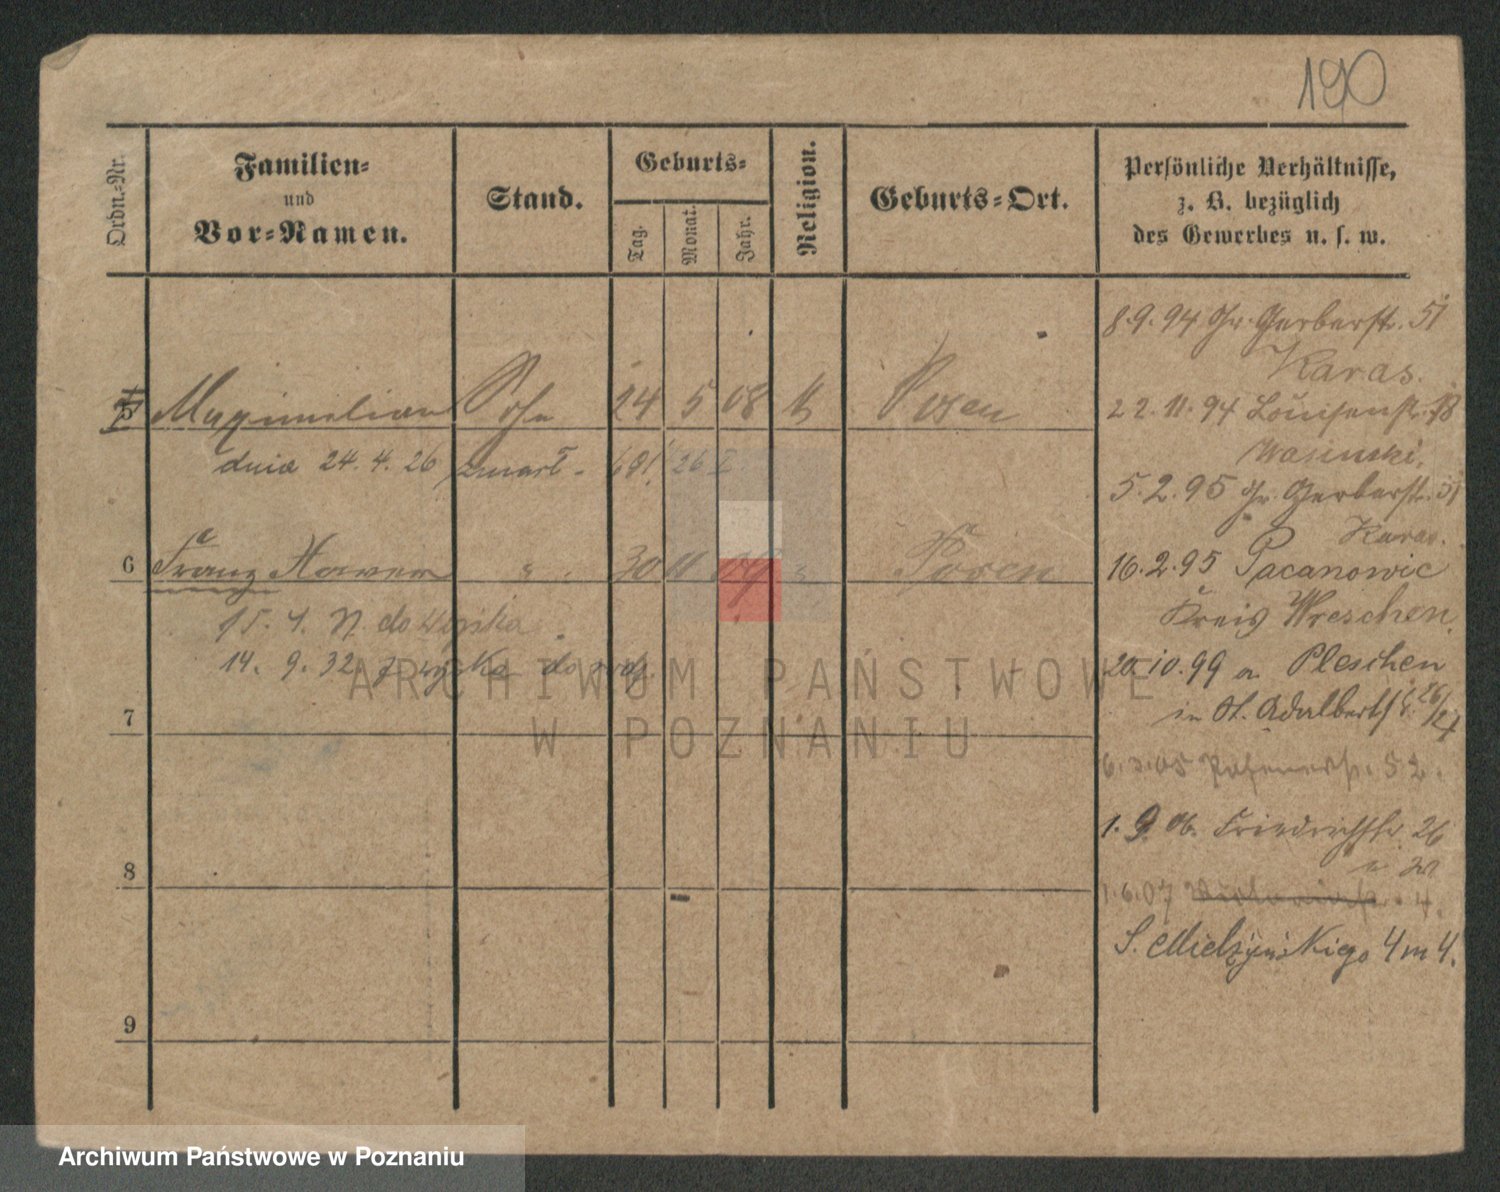 190
Ordn.-Nr.
Familien-
und
Vor-Namen.
Stand.
Geburts-
Tag.
Monat.
Jahr.
Religion.
Geburts-Ort.
Persönliche Verhältnisse,
z. B. bezüglich
des Gewerbes u. s. w.
8.9.94 Gr. Gerberstr. 51
Karas.
5 Maximilian Sohn 24 5 08 k Posen
22.11.94 Louisenstr.
dnia 24.4.26 zmarł
5.2.95 Gr. Gerberstr. 51
Karas.
6 Franz Xaver " 30 11 09 " Posen
16.2.95 Pacanowic
Kreis Wreschen
14. 9. 32
20.10.99 a. Pleschen
in St. Adalbertstr.
7
6.3.05 52.
1. 9. 06. Friedrichstr. 26
8
1.6.07 4.
S. Mielżyńskiego 4 m 4.
9
ARCHIWUM PAŃSTWOWE
W POZNANIU
Archiwum Państwowe w Poznaniu